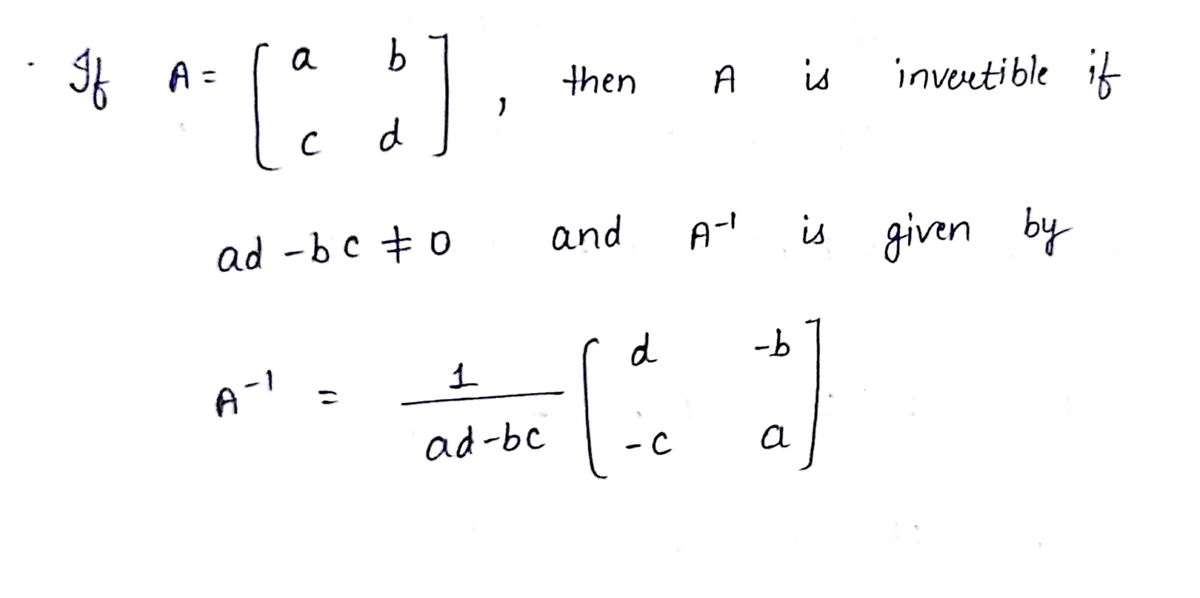 · If A = [ a b ; c d ] , then A is invertible if
ad - bc ≠ 0 and A⁻¹ is given by
A⁻¹ = 1/(ad-bc) [ d -b ; -c a ]